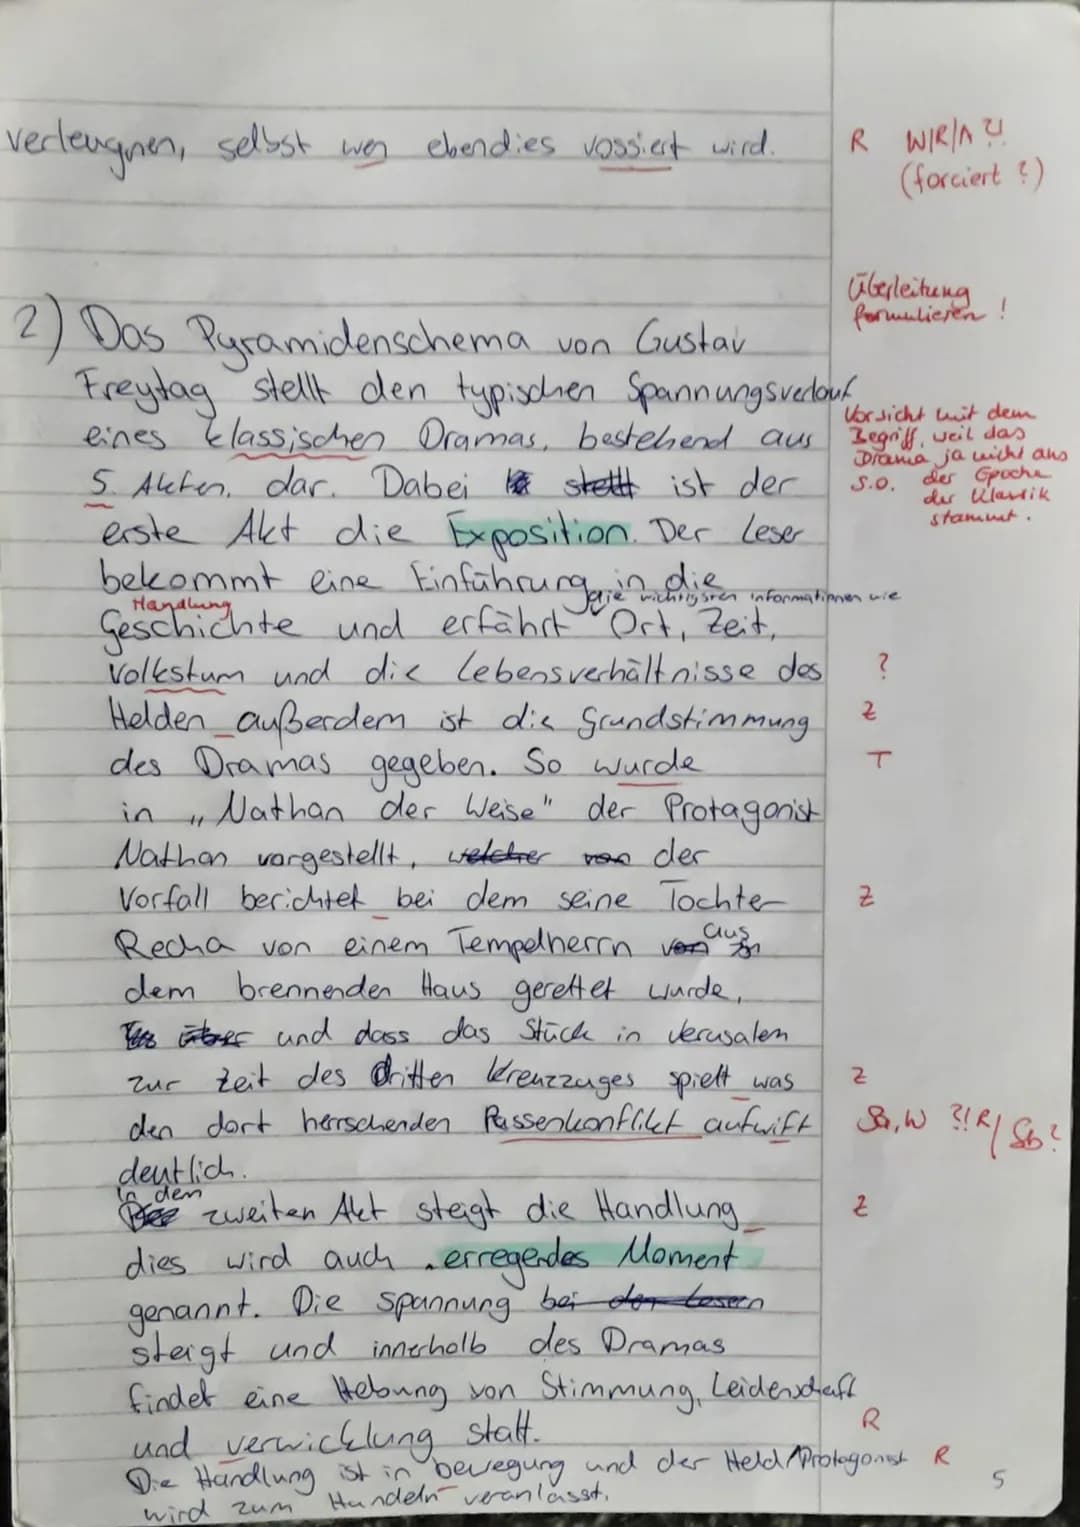 verleugnen, selbst wen ebendies vossiert wird. R W/R/A ?!
(forciert ?)
Überleitung
formulieren !
2) Das Pyramidenschema von Gustav
Freytag stellt den typischen Spannungsverlauf
eines klassischen Dramas, bestehend aus
Vorsicht mit dem
Begriff, weil das
Drama ja nicht aus
der Epoche
der Klassik
stammt.
5. Akten, dar. Dabei stellt ist der s.o.
erste Akt die Exposition. Der Leser
bekommt eine Einführung in die
Handlung die wichtigsten informationen wie
Geschichte und erfährt Ort, Zeit,
Volkstum und die Lebensverhältnisse des ?
Helden außerdem ist die Grundstimmung Z
des Dramas gegeben. So wurde T
in „Nathan der Weise" der Protagonist
Nathan vorgestellt, welcher von der
Vorfall berichtet bei dem seine Tochter Z
Recha von einem Tempelherrn von aus
dem brennenden Haus gerettet wurde,
über und dass das Stück in Jerusalem
zur Zeit des Dritten Kreuzzuges spielt was Z
den dort herrschenden Rassenkonflikt aufwift Sb, W ?! R/ Sb?
deutlich.
In den
zweiten Akt steigt die Handlung Z
dies wird auch erregendes Moment
genannt. Die Spannung bei der Lesern
steigt und innerhalb des Dramas
findet eine Hebung von Stimmung, Leidenschaft
und verwicklung statt. R
Die Handlung ist in bewegung und der Held/Protagonist R
wird zum Handeln veranlasst.
5